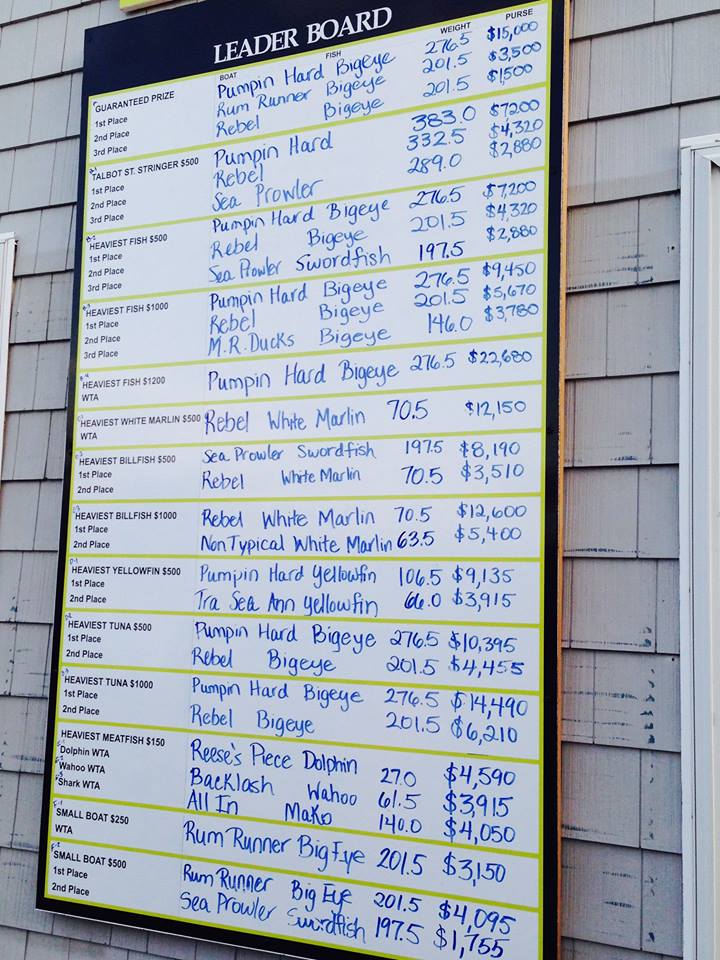 LEADER BOARD
BOAT FISH WEIGHT PURSE
GUARANTEED PRIZE
1st Place Pumpin Hard Bigeye 276.5 $15,000
2nd Place Rum Runner Bigeye 201.5 $3,500
3rd Place Rebel Bigeye 201.5 $1,500
TALBOT ST. STRINGER $500
1st Place Pumpin Hard 383.0 $7200
2nd Place Rebel 332.5 $4,320
3rd Place Sea Prowler 289.0 $2,880
HEAVIEST FISH $500
1st Place Pumpin Hard Bigeye 276.5 $7,200
2nd Place Rebel Bigeye 201.5 $4,320
3rd Place Sea Prowler Swordfish 197.5 $2,880
HEAVIEST FISH $1000
1st Place Pumpin Hard Bigeye 276.5 $9,450
2nd Place Rebel Bigeye 201.5 $5,670
3rd Place M.R.Ducks Bigeye 146.0 $3,780
HEAVIEST FISH $1200
WTA Pumpin Hard Bigeye 276.5 $22,680
HEAVIEST WHITE MARLIN $500
WTA Rebel White Marlin 70.5 $12,150
HEAVIEST BILLFISH $500
1st Place Sea Prowler Swordfish 197.5 $8,190
2nd Place Rebel White Marlin 70.5 $3,510
HEAVIEST BILLFISH $1000
1st Place Rebel White Marlin 70.5 $12,600
2nd Place Non Typical White Marlin 63.5 $5,400
HEAVIEST YELLOWFIN $500
1st Place Pumpin Hard Yellowfin 106.5 $9,135
2nd Place Tra Sea Ann Yellowfin 66.0 $3,915
HEAVIEST TUNA $500
1st Place Pumpin Hard Bigeye 276.5 $10,395
2nd Place Rebel Bigeye 201.5 $4,455
HEAVIEST TUNA $1000
1st Place Pumpin Hard Bigeye 276.5 $14,490
2nd Place Rebel Bigeye 201.5 $6,210
HEAVIEST MEATFISH $150
Dolphin WTA Reese's Piece Dolphin 27.0 $4,590
Wahoo WTA Backlash Wahoo 61.5 $3,915
Shark WTA All In Mako 140.0 $4,050
SMALL BOAT $250
WTA Rum Runner Big Eye 201.5 $3,150
SMALL BOAT $500
1st Place Rum Runner Big Eye 201.5 $4,095
2nd Place Sea Prowler Swordfish 197.5 $1,755